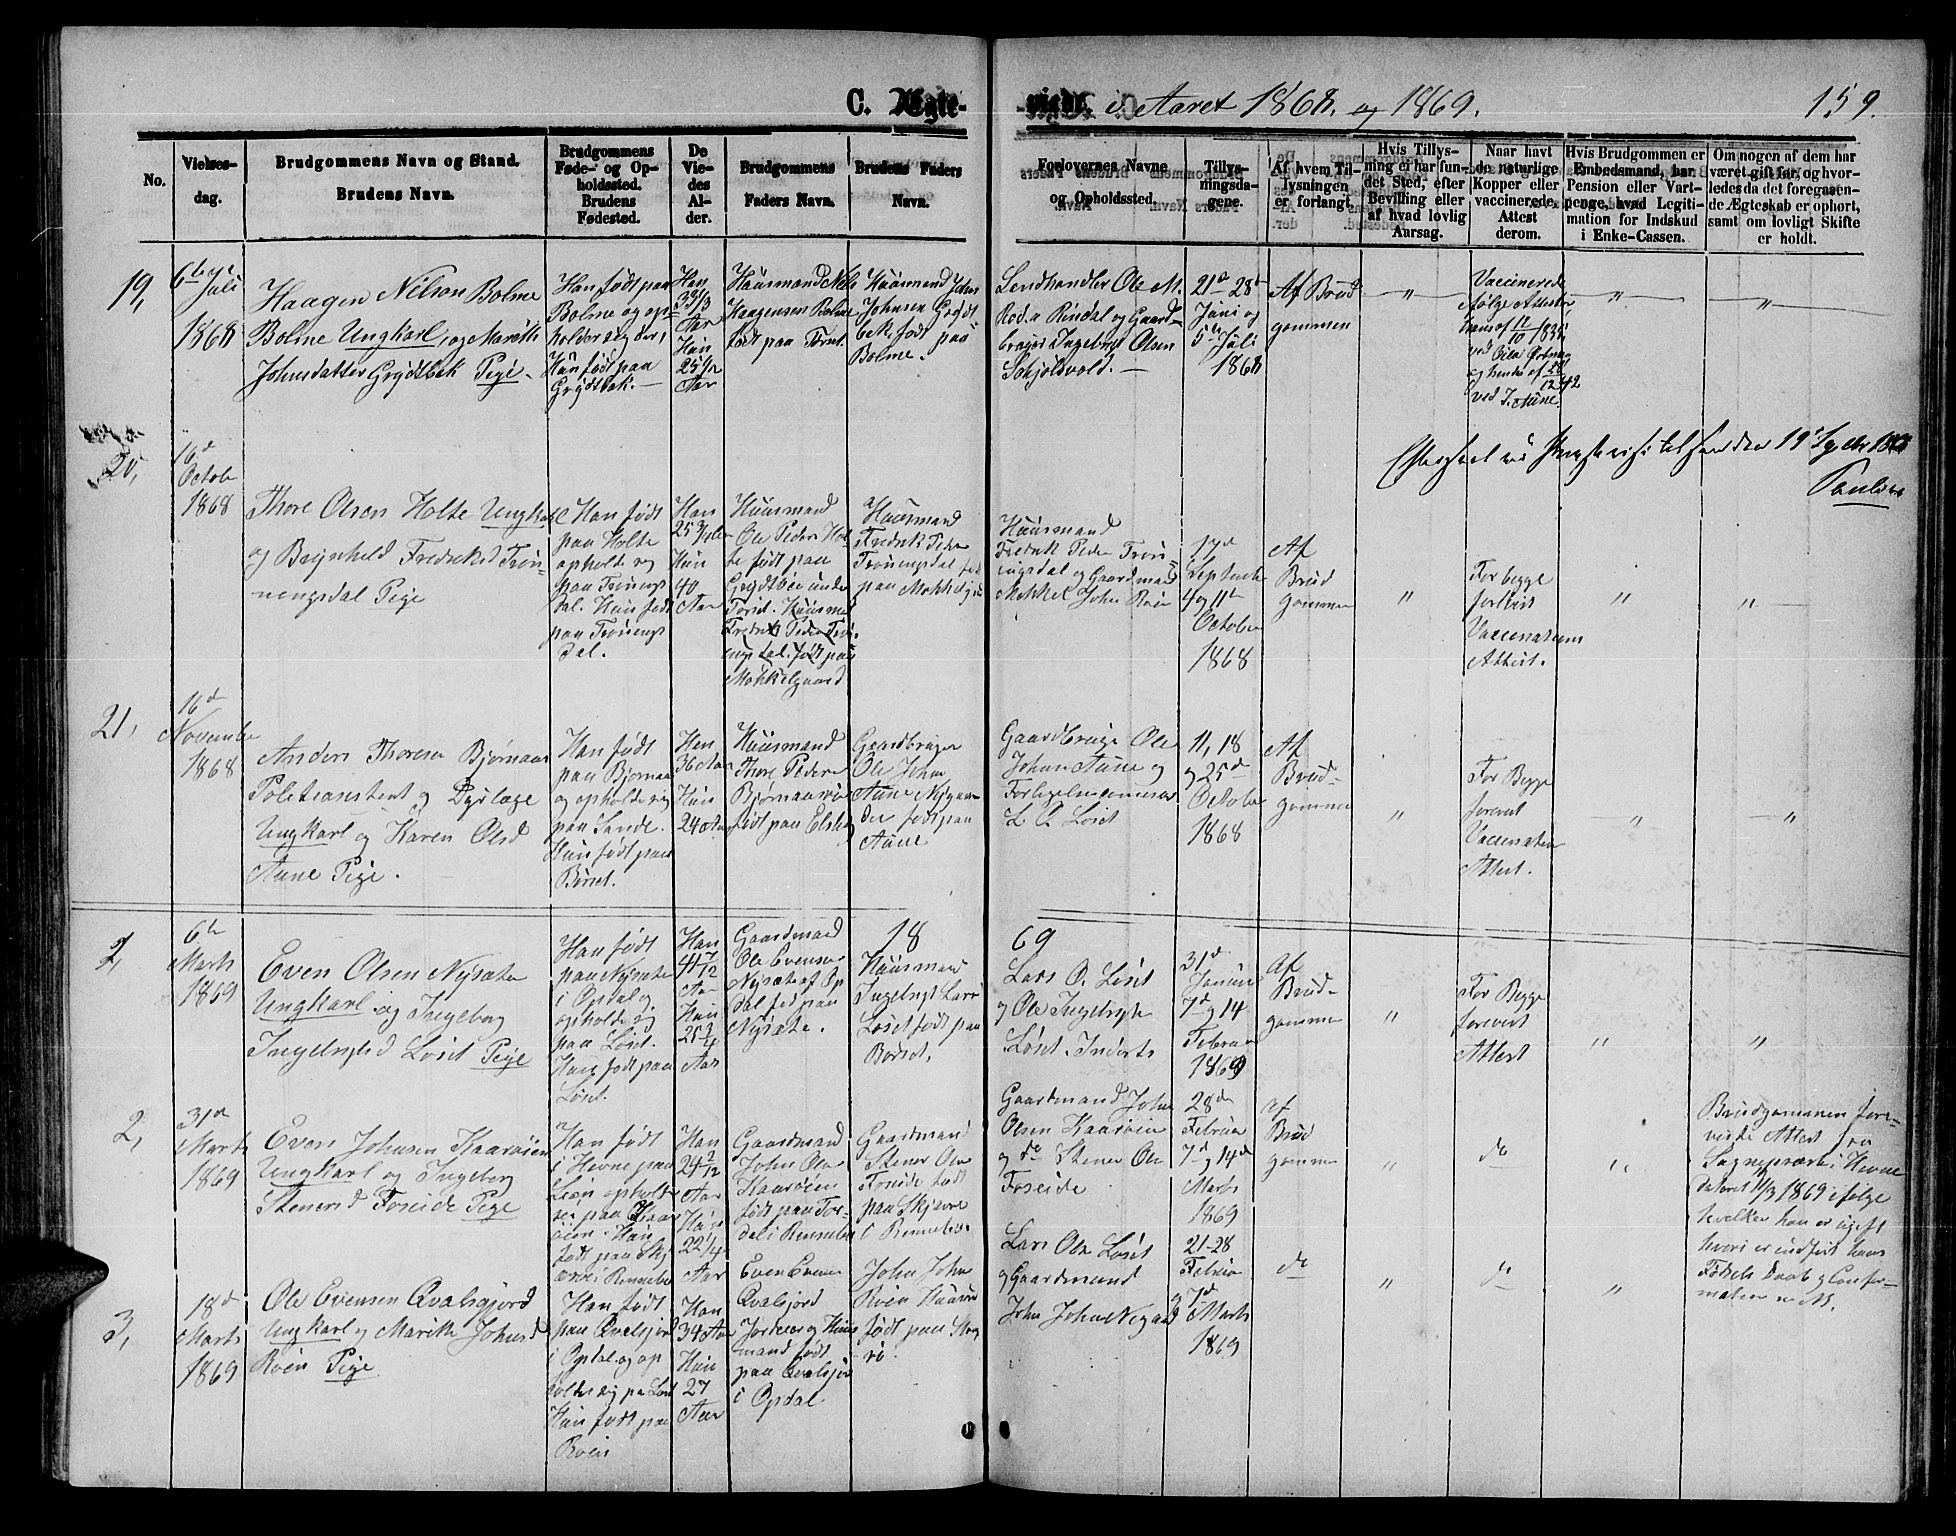 C. Ægte-
viede i Aaret 1868. og 1869.
159.
No.
Vielses-
dag.
Brudgommens Navn og Stand.
Brudens Navn.
Brudgommens
Føde- og Op-
holdssted.
Brudens
Fødested.
De
Vie-
des
Al-
der.
Brudgommens
Faders Navn.
Brudens Faders
Navn.
Forlovernes Navne
og Opholdssted.
Tillys-
ningsda-
gene.
Af hvem Til-
lysningen
er forlangt.
Hvis Tillys-
ning ei har fun-
det Sted, efter
Bevilling eller
af hvad lovlig
Aarsag.
Naar havt
de naturlige
Kopper eller
vaccinerede,
Attest
derom.
Hvis Brudgommen er
Embedsmand, har
Pension eller Vart-
penge, hvad Legiti-
mation for Indskud
i Enke-Cassen.
Om nogen af dem har
været gift før, og hvor-
ledes da det foregaaen-
de Ægteskab er ophørt,
samt om lovligt Skifte
er holdt.
19,
6te
Juli
1868
Haagen Nilsen Bolme
Bolme Ungkarl, og Marith
Johnsdatter Grydtbek Pige.
Han født paa
Bolme og op-
holder sig der,
Hun født paa
Grydtbek.
Han
33 1/3
Aar
Hun
25 1/2
Aar
Huusmand Nils
Haagensen Bolme
født paa Tørset.
Huusmand John
Johnsen Grydt
bek, født paa
Bolme.
Lendhandler Ole M.
Rød i Rindal og Gaard-
bruger Ingebrigt Olsen
Skjølsvold.
21de 28de
Juni og
5te Juli
1868
Af Brud
gommen
"
Vaccinerede
ifølge Attester,
hans af 12/10 1835
ved
og hendes af 28/12 42
ved I. Aune.
"
"
20,
16d
Octobe
1868
Thore Olsen Holte Ungkarl
og Brynhild Fredriksd Trøn-
ningsdal Pige
Han født
paa Holte
opholde sig
paa Trønings
dal. Hun født
paa Trønings
dal.
Han
25 3/4 Aar
Hun
40
Aar
Huusmand
Ole Peders Hol-
te født paa
Grydtbек under
Torset. Huusmand
Fredrik Peders Trø-
ningsdal, født paa
Mokkelgaard
Huusmand
Fredrik Peders
Trøningsdal født
paa Mokkelgaard
Huusmand
Fredrik Peder Trøn-
ingsdal og Gaardmand
Mikkel John Røen
17de
Septembe
4 og 11te
October
1868
Af
Brud
gommen
"
For begge
forevist
Vaccinations
Attest.
"
"
21,
16d
November
1868
Anders Thoresen Bjørnaas
Politeassistent og Dyrlæge
Ungkarl og Karen Olsd
Aune Pige.
Han født
paa Bjørnaas
og opholde sig
paa Sande.
Hun født paa
Børset.
Han
36 Aar
Hun
24 Aar
Huusmand
Thore Peders
Bjørnaas
født paa
Gaardbruger
Ole John
Aune
født paa
Aune
Gaardbruger Ole
Johan Aune og
Forligelsescommissær
L O Løset
11, 18
og 25de
October
1868
Af
Brud-
gommen
"
For Begge
forevist
Vaccination
Attest.
"
"
18
69
6te
Marts
1869
Even Olsen Nysæter
Ungkarl og Ingeborg
Ingebrigtsd Løset Pige
Han født
paa Nysæter
i Opdal og
opholde sig
paa Løset.
Hun født paa
Løset.
Han
41 7/12
Aar
Hun
25 3/4
Aar
Gaardmand
Ole Evensen
Nysæter af Op
dal, født paa
Nysæte.
Huusmand
Ingebrigt Lars
Løset født paa
Børset.
Lars O. Løset
og Ole Ingebrigts
Løset Inderts
31de
Januar
7de og 14
Februar
1869
Af
Brud-
gommen
"
For Begge
forevist
Attest
"
"
2,
31de
Marts
1869
Even Johnsen Kaarøien
Ungkarl og Ingeborg
Stenersd Foseide Pige
Han født
i Hevne paa
Lien opholde
sig paa Kaar
øien. Hun
født paa Skj
øvre i Rennebo
Han
24 2/12
Aar
Hun
22 1/4
Aar
Gaardmand
John Ols
Kaarøien
født paa
i Rennebo
Gaardmand
Stener Ols
Foseide født
paa Skjøvre
i Rennebo.
Gaardmand John
Olsen Kaarøien
og do Stener Ols
Foseide
28de
Februar
7de og 14de
Marts
1869
af
Brud
gommen
"
do
"
Brudgommen fore-
viste Attest fra
Sognepræst i Hevne
dateret 11/3 1869 ifølge
hvilken han er ugift
hvori er indført hans
Fødsels Daab og Confir-
mation m M.
3,
18d
Marts
1869
Ole Evensen Qvalsgjord
Ungkarl og Marith Johnsd
Røen Pige
Han født
paa Qvalsjord
i Opdal og op
holder sig paa Løset
Hun født paa
Røen
Han
34 Aar
Hun
27
Aar
Even Evens
Qvalsjord
og Huus
mand født
paa Qvalsjor
i Opdal
John John
Røen Huusm
født paa
Lars Ols Løset
og Gaardmand
John John Negaard
21-28
Februar
og 7de
Marts
1869
do
"
do
"